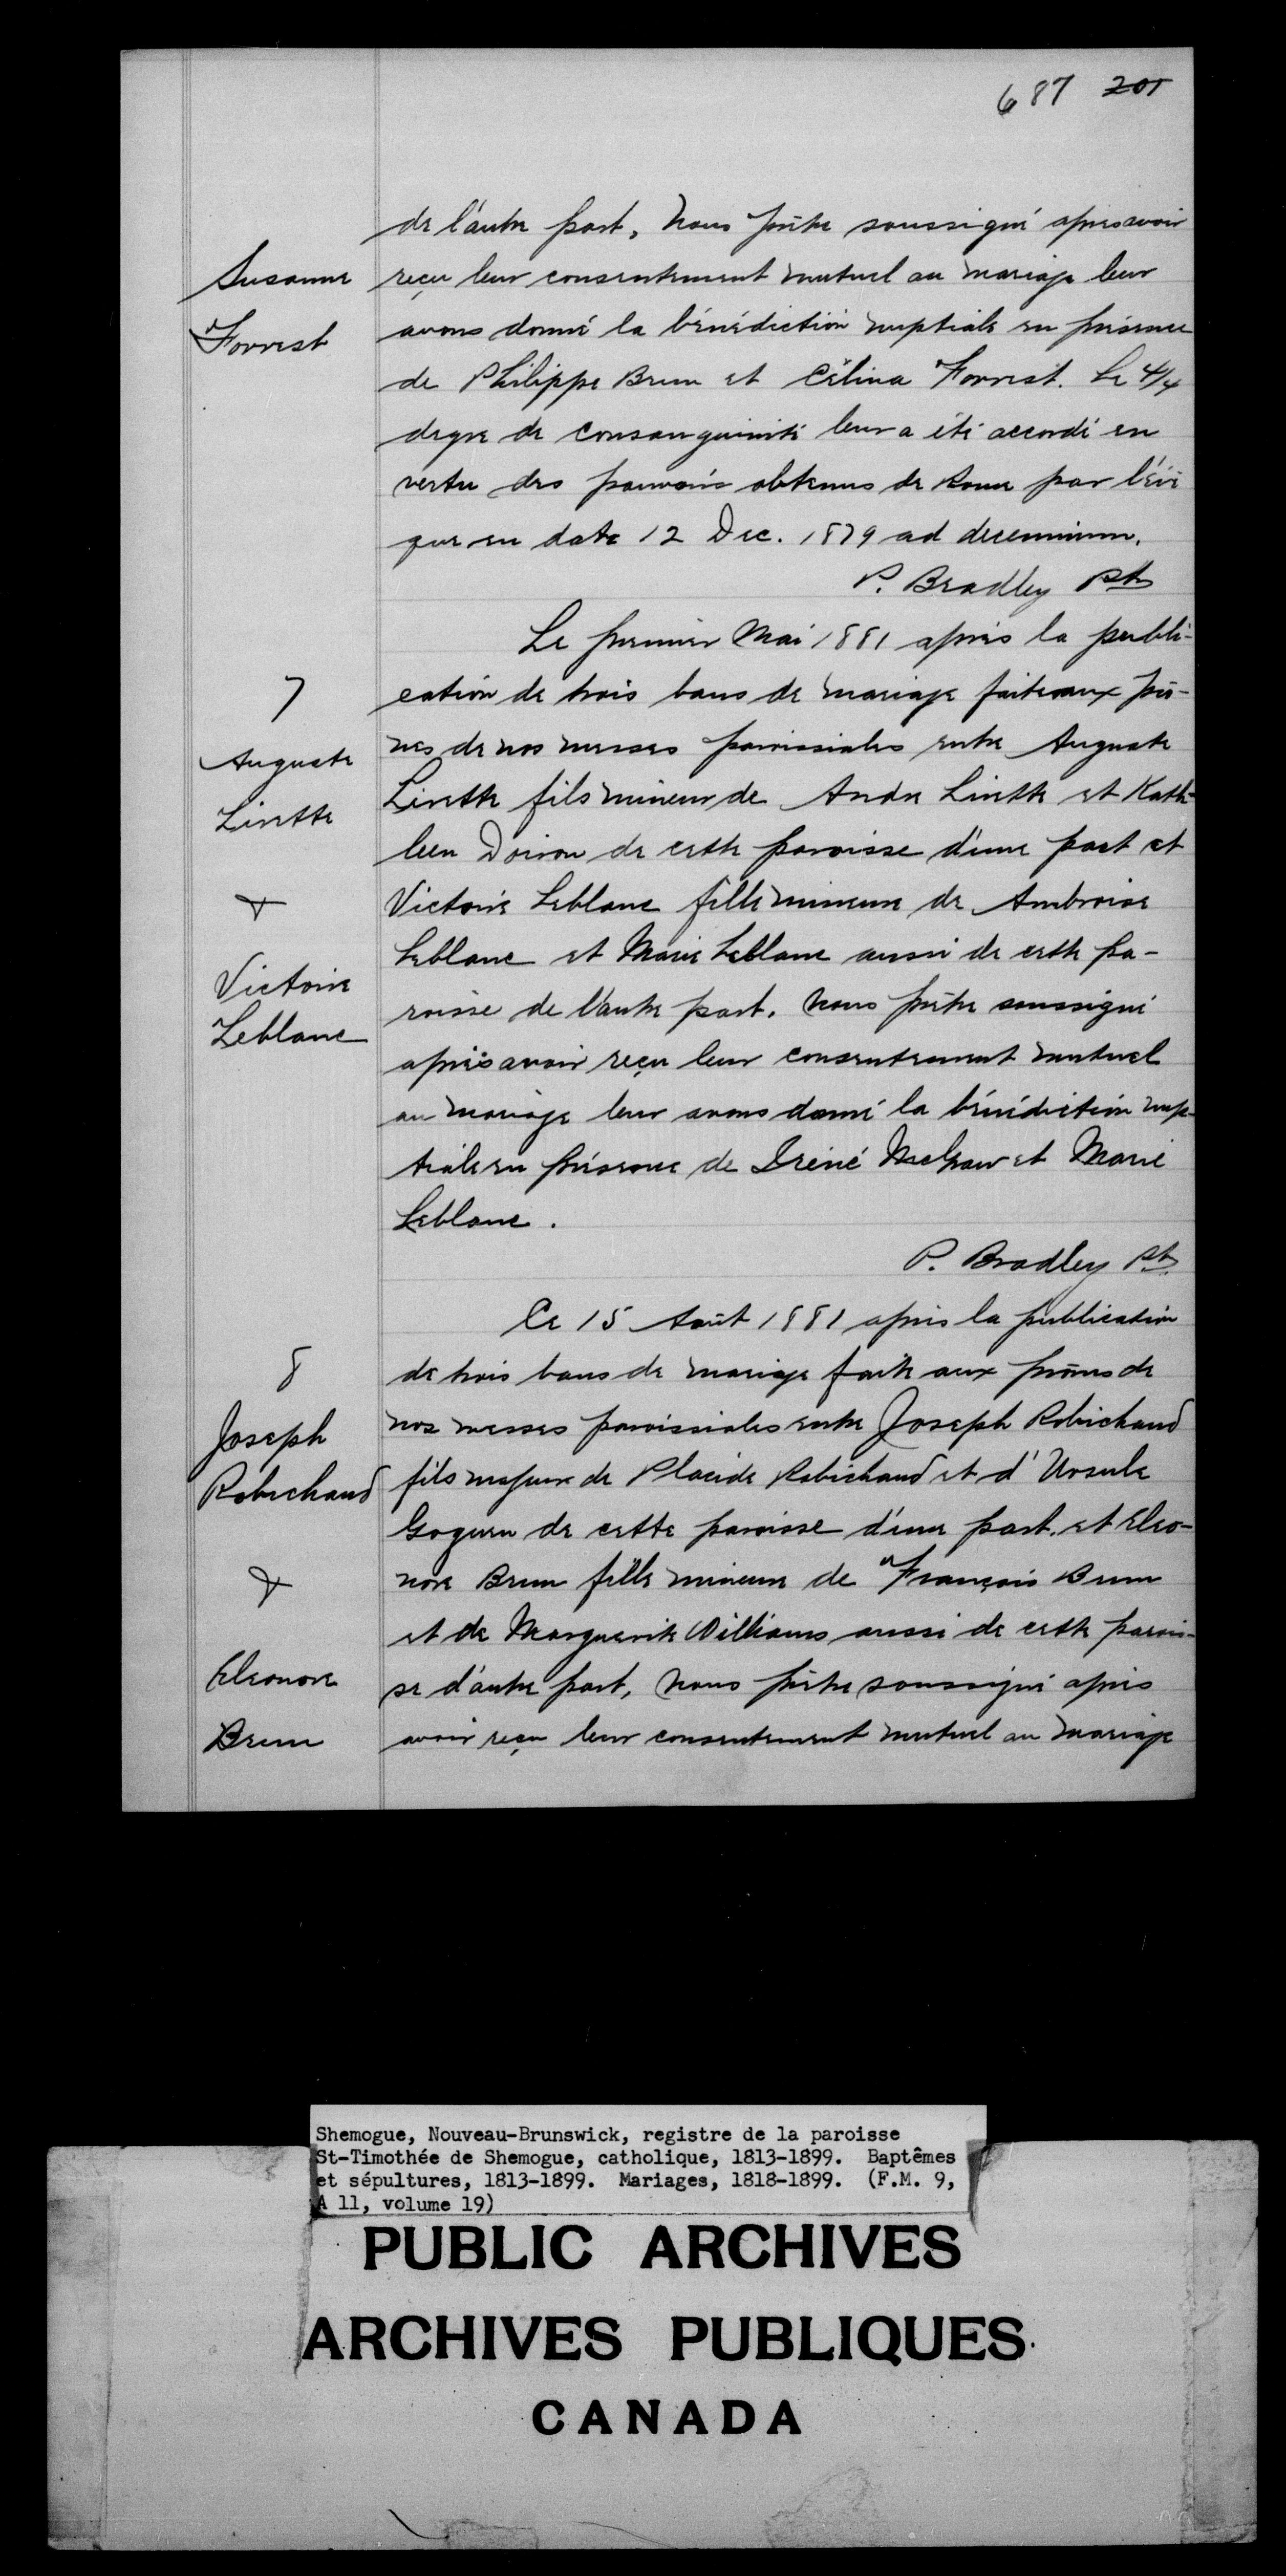 687 201
de l'autre part, Nous prêtre soussigné après avoir
Susanne
reçu leur consentement mutuel au mariage leur
Forrest
avons donné la bénédiction nuptiale en présence
de Philippe Brun et Célina Forrest. Le 4/4
degre de consanguinité leur a été accordé en
vertu des pouvoirs obtenus de Rome par l'évê
que en date 12 Dec. 1879 ad decennium.
P. Bradley Ptr
Le premier Mai 1881 après la publi-
7
cation de trois bans de mariage faite aux prô-
nes de nos messes paroissiales entre Auguste
Auguste
Lirette fils mineur de Andre Lirette et Kath-
Lirette
leen Doiron de cette paroisse d'une part et
&
Victoire Leblanc fille mineure de Ambroise
Leblanc et Marie Leblanc aussi de cette pa-
Victoire
roisse de l'autre part. Nous prêtre soussigné
Leblanc
après avoir reçu leur consentement mutuel
au mariage leur avons donné la bénédiction nup-
tiale en présence de Iréné McGraw et Marie
Leblanc.
P. Bradley Ptr
Ce 15 Août 1881 après la publication
8
de trois bans de mariage faite aux prônes de
Joseph
nos messes paroissiales entre Joseph Robichaud
Robichaud
fils majeur de Placide Robichaud et d'Ursule
Goguen de cette paroisse d'une part. et Eleo-
&
nore Brun fille mineure de François Brun
et de Marguerite Williams aussi de cette parois-
Eleonore
se d'autre part, Nous prêtre soussigné après
Brun
avoir reçu leur consentement mutuel au mariage
Shemogue, Nouveau-Brunswick, registre de la paroisse
St-Timothée de Shemogue, catholique, 1813-1899. Baptêmes
et sépultures, 1813-1899. Mariages, 1818-1899. (F.M. 9,
A 11, volume 19)
PUBLIC ARCHIVES
ARCHIVES PUBLIQUES
CANADA